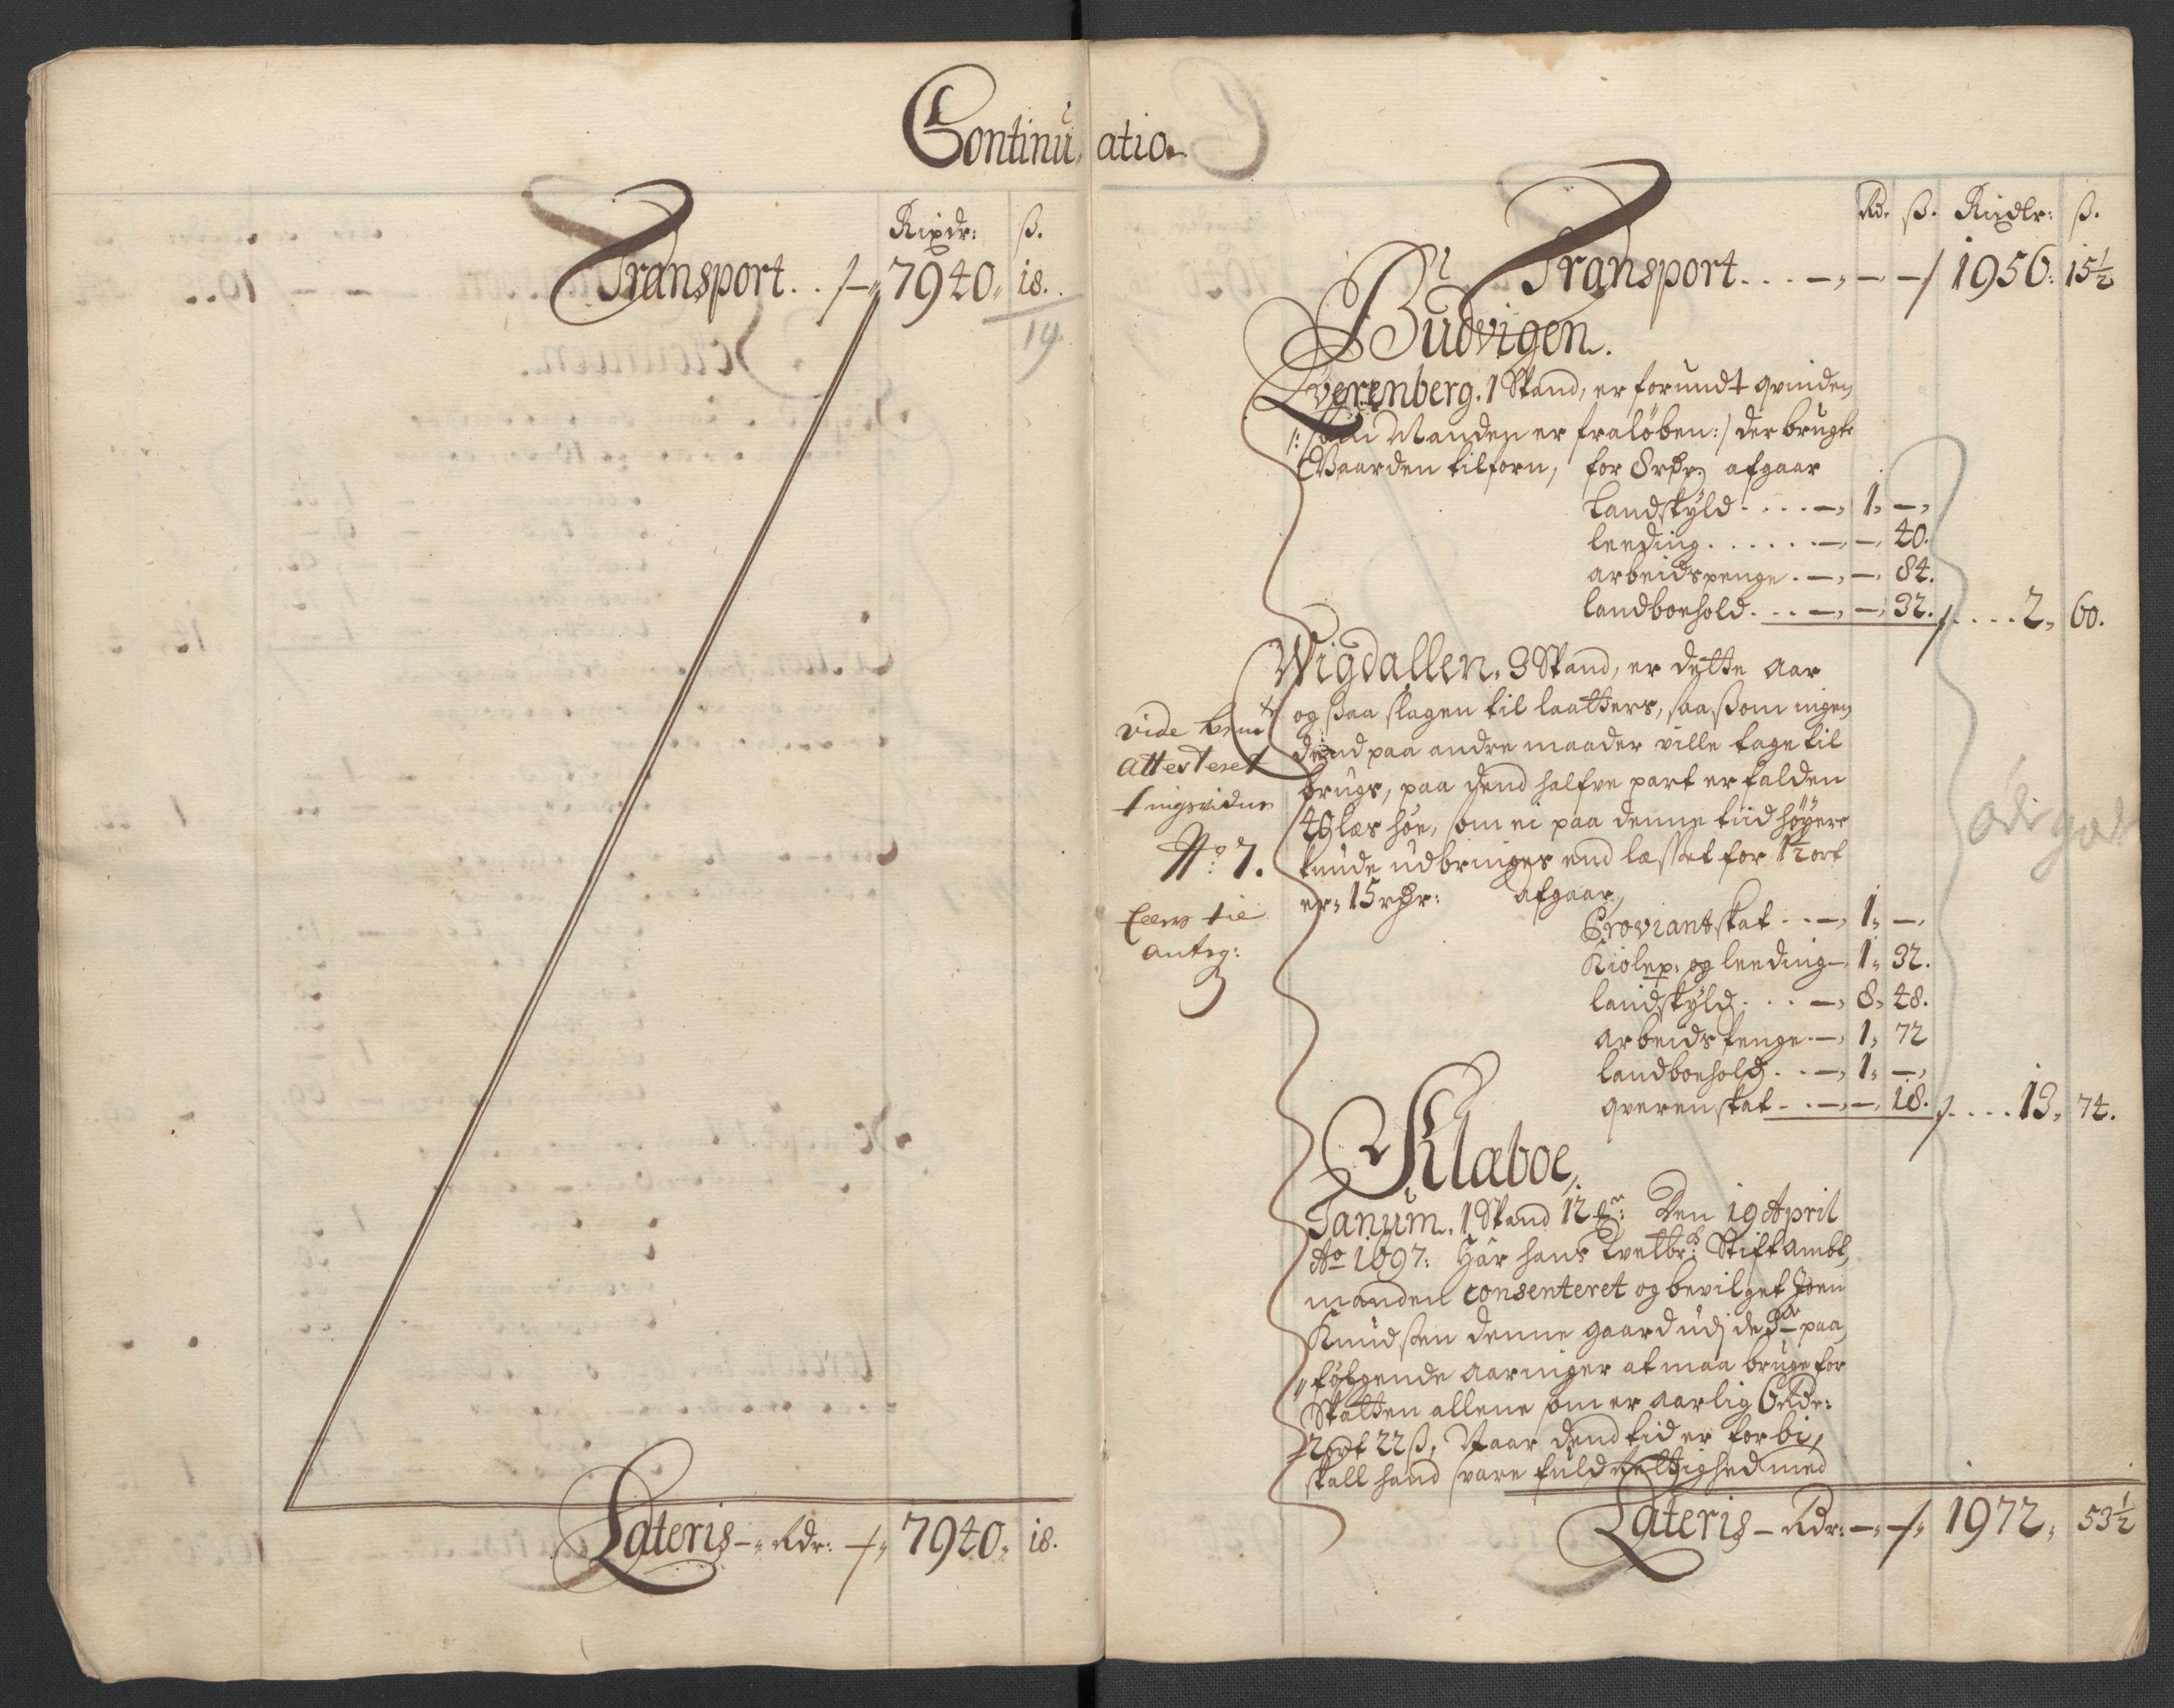 Continu, atio
Rixdr: ß.
Transport . . /—„ 7940„ 18.
19
Lateris —„ Rdr: —/„ 7940„ 18.
Rd. ß. Rixdlr: ß.
Transport . . . . —„ — —/ 1956: 15½
Budvigen.
Qverenberg. 1 Spand, er forundt qvinden
/: som Manden er fraløben :/ der brugte
Gaarden tilforn, for 8 rdr, afgaar
Landskyld . . . . —„ 1„ —„
leeding . . . . . . —„ —„ 40.
arbeidspenge . —„ —„ 84.
landboehold . . . —„ —„ 32. /. . . . 2„ 60.
Wigdallen. 3 Spand, er dette aar
og saa slagen til laatters, saasom ingen
dend paa andre maader ville tage til
brugs, paa dend halfve part er falden
40 læs høe, som ei paa denne tiid høyere
kunde udbringes end læsset for 1½ ort
er„ 15 rdr: afgaar,
vide
attesteret
tingsvidne
No 7.
til
anteg:
Proviantskat . . —„ 1„ —„
Kiolep: og leeding — 1„ 32.
landskyld . . . —„ 8„ 48.
arbeidspenge . —„ 1„ 72
landboehold . . —„ 1„ —„
qveren skat . . —„ —„ 18. /. . . . 13„ 74.
Klæboe,
Tanum. 1 Spand 12 Den 19 April
Ao 1697: Har hans Stiftambt,
manden consenteret og bevilget Joen
Knudsen denne gaard udj de 3de paa
„følgende aaringer at maa bruge for
Skatten allene som er aarlig 6 Rdr:
2 ort 22 ß, Naar dend tid er forbi,
skall hand svare fuld rettighed med
Lateris — Rdr: —„ —/„ 1972„ 53½